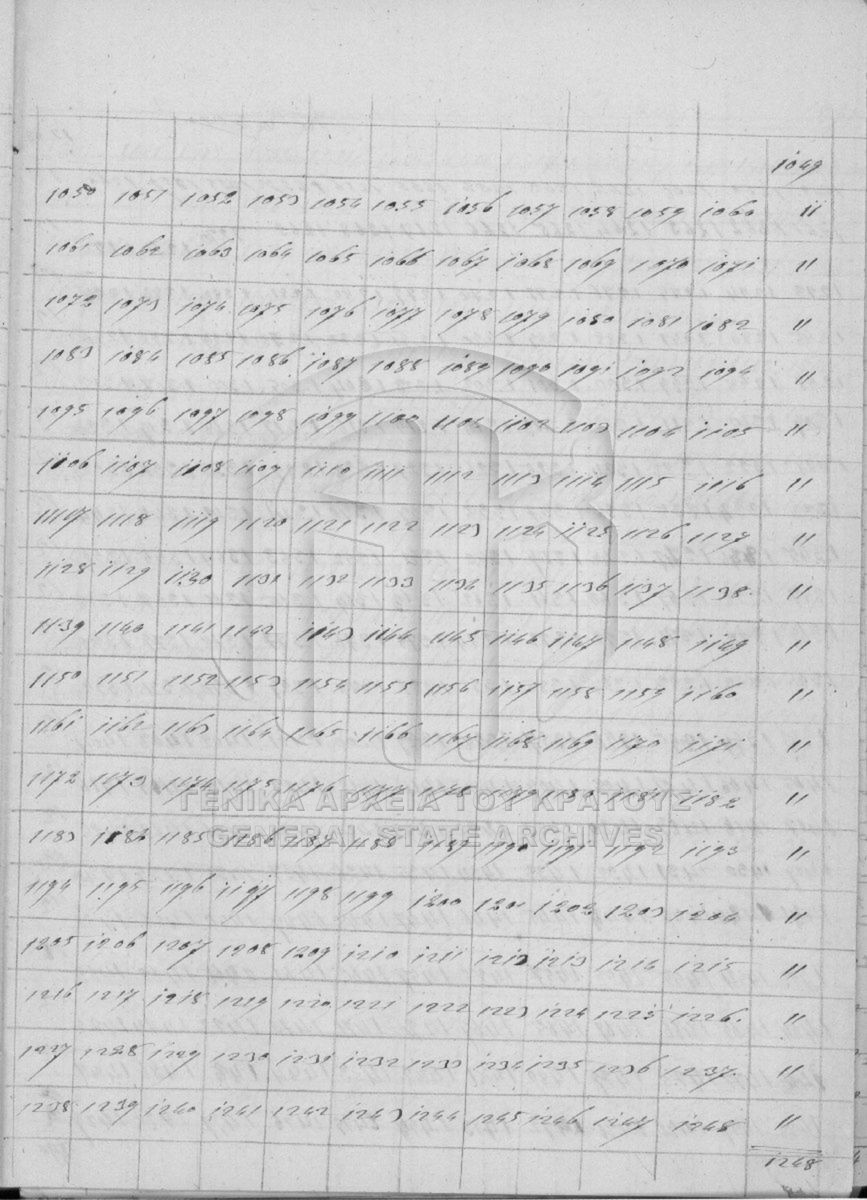 1049
1050 1051 1052 1053 1054 1055 1056 1057 1058 1059 1060 "
1061 1062 1063 1064 1065 1066 1067 1068 1069 1070 1071 "
1072 1073 1074 1075 1076 1077 1078 1079 1080 1081 1082 "
1083 1084 1085 1086 1087 1088 1089 1090 1091 1092 1094 "
1095 1096 1097 1098 1099 1100 1101 1102 1103 1104 1105 "
1106 1107 1108 1109 1110 1111 1112 1113 1114 1115 1116 "
1117 1118 1119 1120 1121 1122 1123 1124 1125 1126 1127 "
1128 1129 1130 1131 1132 1133 1134 1135 1136 1137 1138 "
1139 1140 1141 1142 1143 1144 1145 1146 1147 1148 1149 "
1150 1151 1152 1153 1154 1155 1156 1157 1158 1159 1160 "
1161 1162 1163 1164 1165 1166 1167 1168 1169 1170 1171 "
1172 1173 1174 1175 1176 1177 1178 1179 1180 1181 1182 "
ΓΕΝΙΚΑ ΑΡΧΕΙΑ ΤΟΥ ΚΡΑΤΟΥΣ
GENERAL STATE ARCHIVES
1183 1184 1185 1186 1187 1188 1189 1190 1191 1192 1193 "
1194 1195 1196 1197 1198 1199 1200 1201 1202 1203 1204 "
1205 1206 1207 1208 1209 1210 1211 1212 1213 1214 1215 "
1216 1217 1218 1219 1220 1221 1222 1223 1224 1225 1226 "
1227 1228 1229 1230 1231 1232 1233 1234 1235 1236 1237 "
1238 1239 1240 1241 1242 1243 1244 1245 1246 1247 1248 "
1248